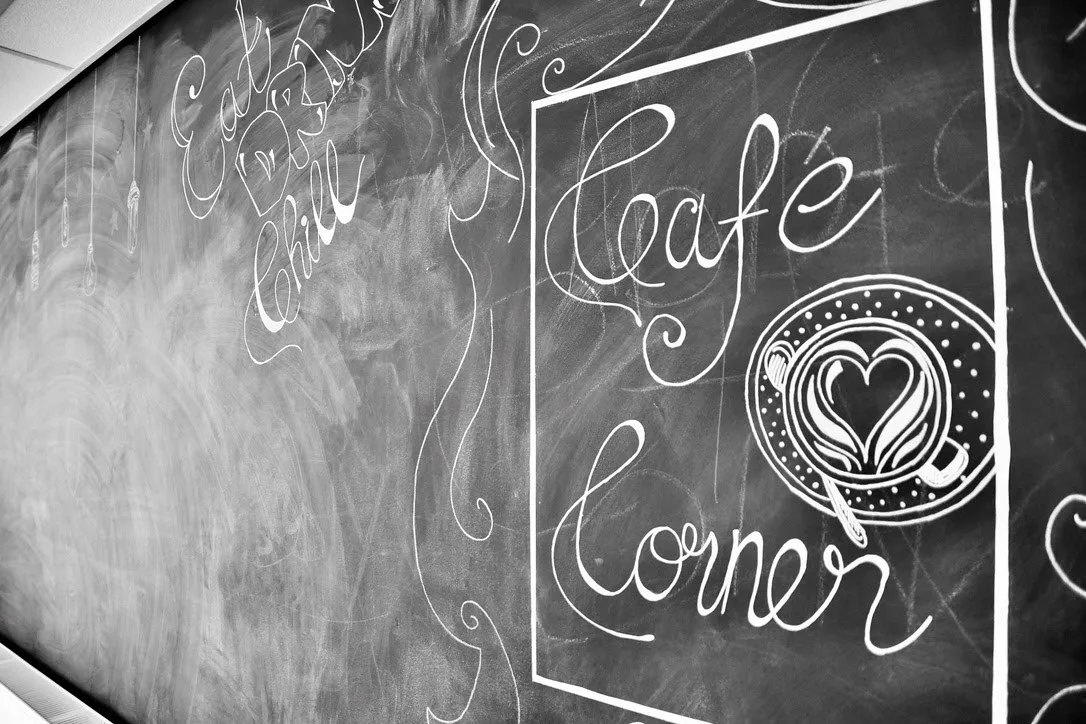 Eat
DRINK
Chill
Café
Corner